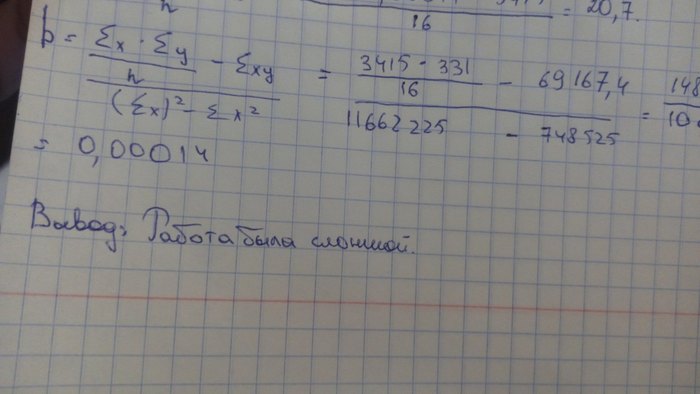 n
16
= 20,7.
b = Σx · Σy / n - Σxy / (Σx)² - Σx² = 3415 · 331 / 16 - 69167,4 / 11662225 - 748525 =
= 0,00014
Вывод: Работа была сложной.